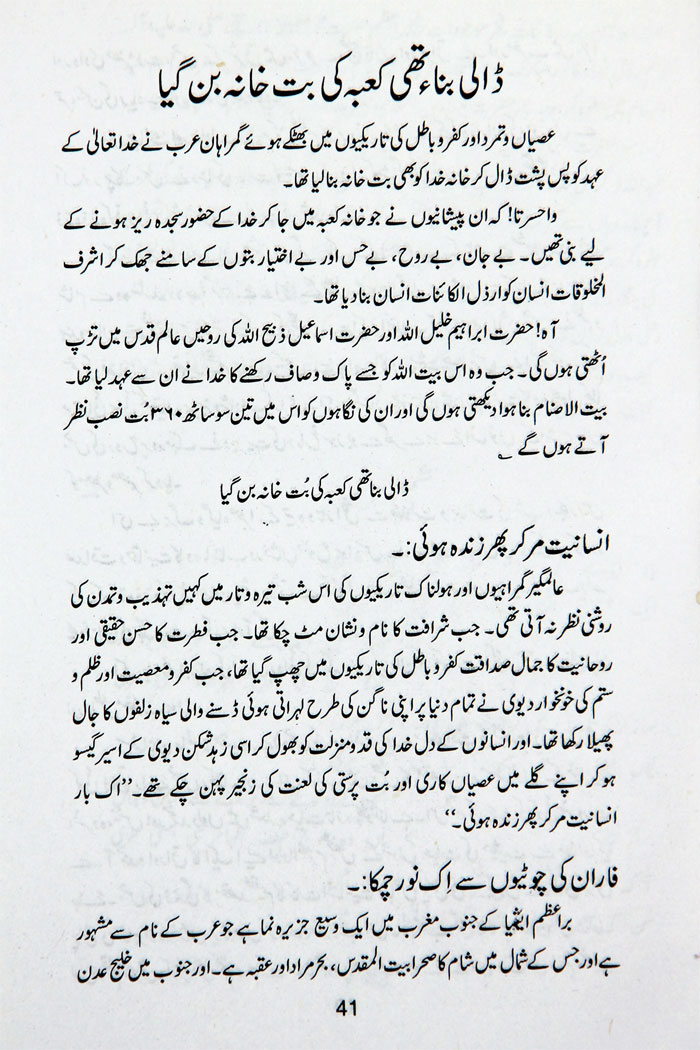 ڈالی بناء تھی کعبہ کی بت خانہ بن گیا
عصیاں و تمرد اور کفر و باطل کی تاریکیوں میں بھٹکے ہوئے گمراہان عرب نے خدا تعالیٰ کے
عہد کو پس پشت ڈال کر خانہ خدا کو بھی بت خانہ بنا لیا تھا۔
واحسرتا! کہ ان پیشانیوں نے جو خانہ کعبہ میں جا کر خدا کے حضور سجدہ ریز ہونے کے
لیے بنی تھیں۔ بے جان، بے روح، بے حس اور بے اختیار بتوں کے سامنے جھک کر اشرف
المخلوقات انسان کو ارذل الکائنات انسان بنا دیا تھا۔
آہ! حضرت ابراہیم خلیل اللہ اور حضرت اسماعیل ذبیح اللہ کی روحیں عالم قدس میں تڑپ
اُٹھتی ہوں گی۔ جب وہ اس بیت اللہ کو جسے پاک و صاف رکھنے کا خدا نے ان سے عہد لیا تھا۔
بیت الاصنام بنا ہوا دیکھتی ہوں گی اور ان کی نگاہوں کو اس میں تین سو ساٹھ ۳۶۰ بُت نصب نظر
آتے ہوں گے ؎
ڈالی بنا تھی کعبہ کی بُت خانہ بن گیا
انسانیت مر کر پھر زندہ ہوئی:۔
عالمگیر گمراہیوں اور ہولناک تاریکیوں کی اس شب تیرہ و تار میں کہیں تہذیب و تمدن کی
روشنی نظر نہ آتی تھی۔ جب شرافت کا نام و نشان مٹ چکا تھا۔ جب فطرت کا حسن حقیقی اور
روحانیت کا جمال صداقت کفر و باطل کی تاریکیوں میں چھپ گیا تھا، جب کفر و معصیت اور ظلم و
ستم کی خونخوار دیوی نے تمام دنیا پر اپنی ناگن کی طرح لہراتی ہوئی ڈسنے والی سیاہ زلفوں کا جال
پھیلا رکھا تھا۔ اور انسانوں کے دل خدا کی قدومنزلت کو بھول کر اسی زہد شکن دیوی کے اسیر گیسو
ہو کر اپنے گلے میں عصیاں کاری اور بُت پرستی کی لعنت کی زنجیر پہن چکے تھے۔ ”اک بار
انسانیت مر کر پھر زندہ ہوئی۔“
فاران کی چوٹیوں سے اِک نور چمکا:۔
براعظم ایشیا کے جنوب مغرب میں ایک وسیع جزیرہ نما ہے جو عرب کے نام سے مشہور
ہے اور جس کے شمال میں شام کا صحرا بیت المقدس، بحر مراد اور عقبہ ہے۔ اور جنوب میں خلیج عدن
41